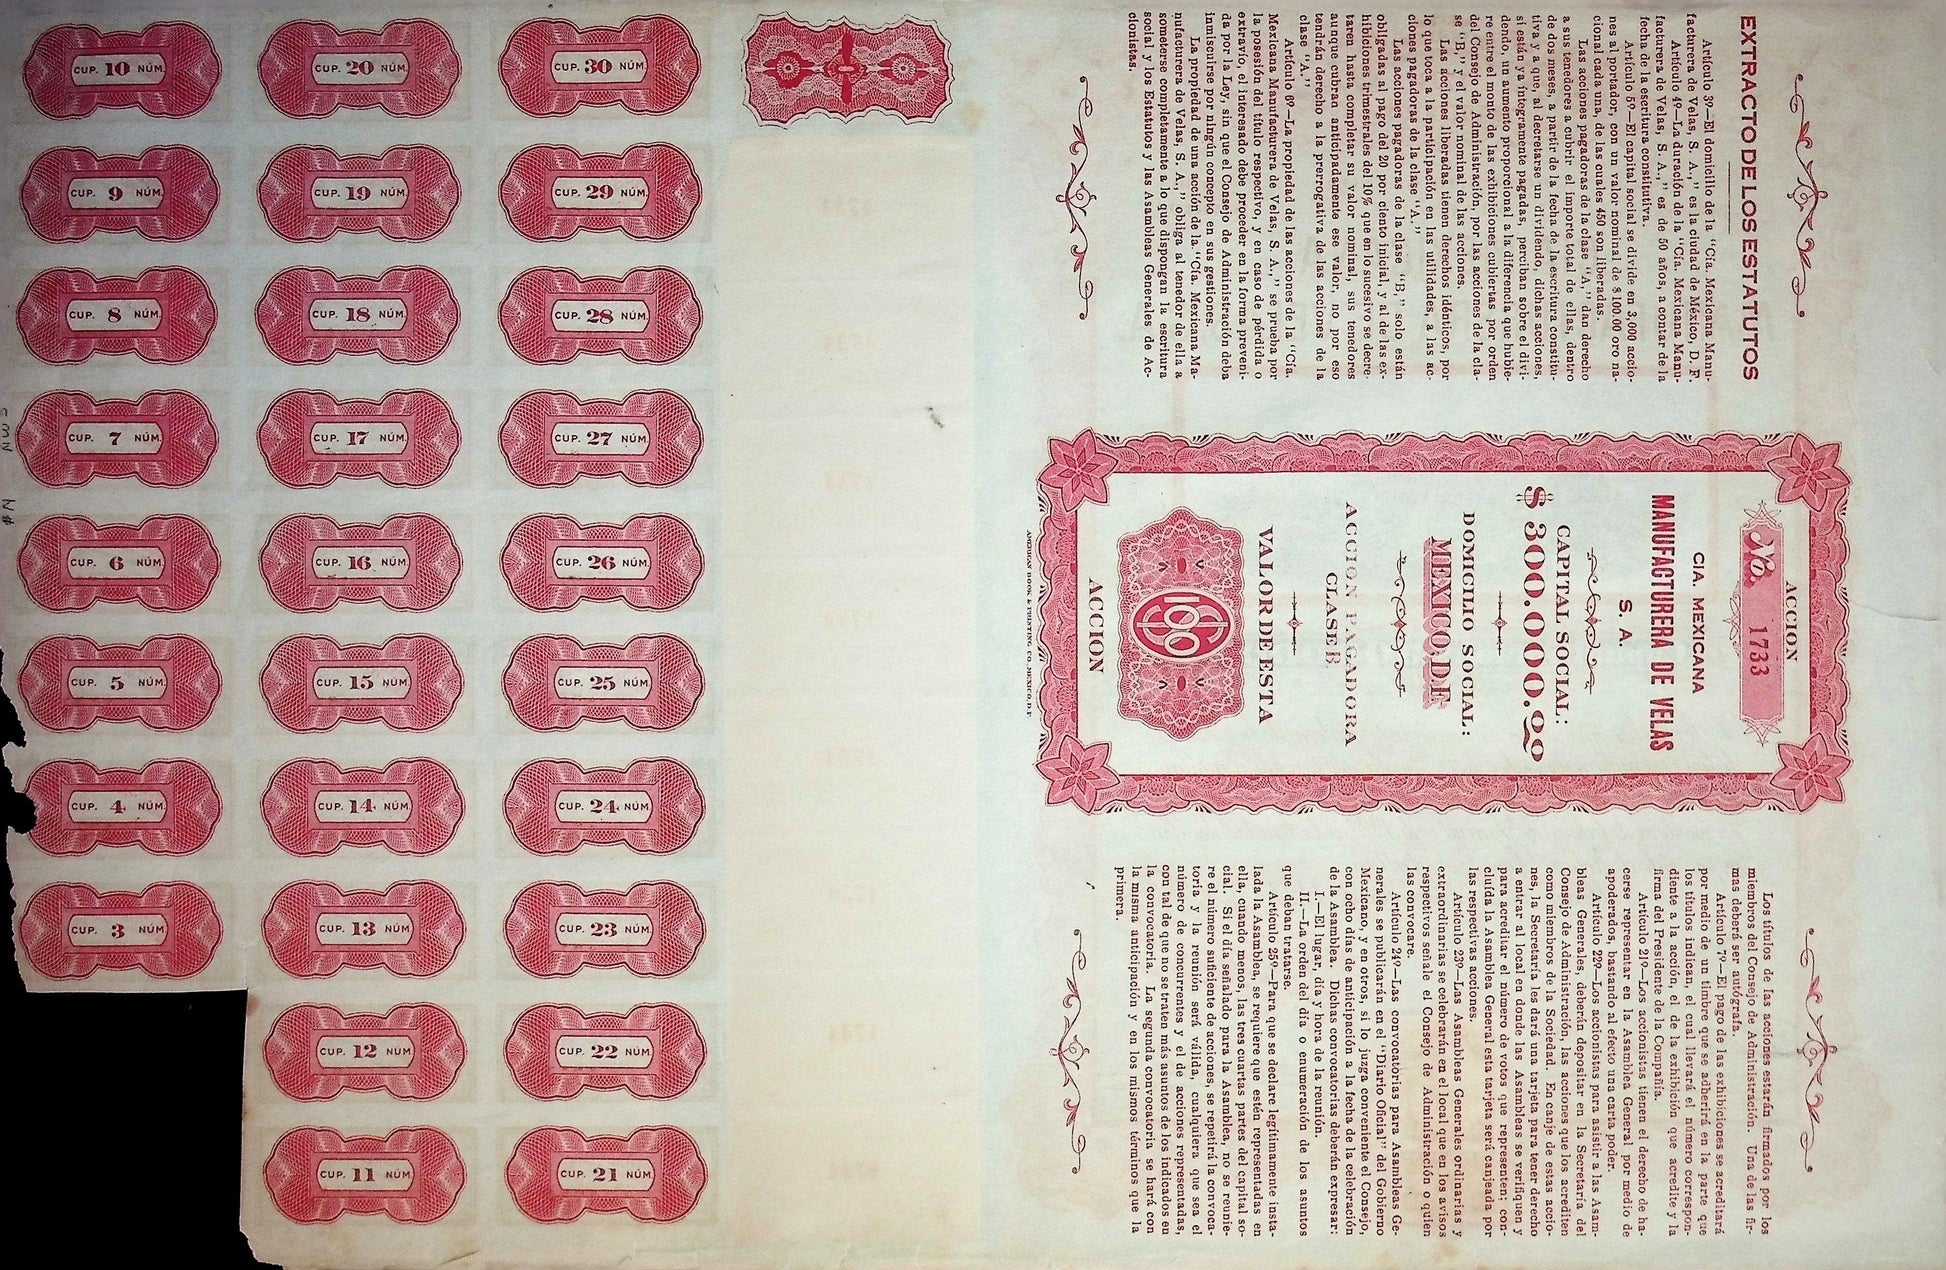 EXTRACTO DE LOS ESTATUTOS
Artículo 3º—El domicilio de la "Cía. Mexicana Manu-
facturera de Velas, S. A.," es la ciudad de México, D. F.
Artículo 4º—La duración de la "Cía. Mexicana Manu-
facturera de Velas, S. A.," es de 50 años, a contar de la
fecha de la escritura constitutiva.
Artículo 5º—El capital social se divide en 3,000 accio-
nes al portador, con un valor nominal de $100.00 oro na-
cional cada una, de las cuales 450 son liberadas.
Las acciones pagadoras de la clase "A," dan derecho
a sus tenedores a cubrir el importe total de ellas, dentro
de dos meses, a partir de la fecha de la escritura constitu-
tiva y a que, al decretarse un dividendo, dichas acciones,
si están ya íntegramente pagadas, perciban sobre el divi-
dendo, un aumento proporcional a la diferencia que hubie-
re entre el monto de las exhibiciones cubiertas por orden
del Consejo de Administración, por las acciones de la cla-
se "B," y el valor nominal de las acciones.
Las acciones liberadas tienen derechos idénticos, por
lo que toca a la participación en las utilidades, a las ac-
ciones pagadoras de la clase "A."
Las acciones pagadoras de la clase "B," solo están
obligadas al pago del 20 por ciento inicial, y al de las ex-
hibiciones trimestrales del 10% que en lo sucesivo se decre-
taren hasta completar su valor nominal, sus tenedores
aunque cubran anticipadamente ese valor, no por eso
tendrán derecho a la prerrogativa de las acciones de la
clase "A."
Artículo 6º—La propiedad de las acciones de la "Cía.
Mexicana Manufacturera de Velas, S. A.," se prueba por
la posesión del título respectivo, y en caso de pérdida o
extravío, el interesado debe proceder en la forma preveni-
da por la Ley, sin que el Consejo de Administración deba
inmiscuirse por ningún concepto en sus gestiones.
La propiedad de una acción de la "Cía. Mexicana Ma-
nufacturera de Velas, S. A.," obliga al tenedor de ella a
someterse completamente a lo que dispongan la escritura
social y los Estatutos y las Asambleas Generales de Ac-
cionistas.
ACCION
No. 1733
CIA. MEXICANA
MANUFACTURERA DE VELAS
S. A.
CAPITAL SOCIAL:
$ 300.000.00
DOMICILIO SOCIAL:
MEXICO, D.F.
ACCION PAGADORA
CLASE B.
VALOR DE ESTA
$100
ACCION
AMERICAN BOOK & PRINTING CO. MEXICO, D.F.
Los títulos de las acciones estarán firmados por los
miembros del Consejo de Administración. Una de las fir-
mas deberá ser autógrafa.
Artículo 7º—El pago de las exhibiciones se acreditará
por medio de un timbre que se adherirá en la parte que
los títulos indican, el cual llevará el número correspon-
diente a la acción, el de la exhibición que acredite y la
firma del Presidente de la Compañía.
Artículo 21º—Los accionistas tienen el derecho de ha-
cerse representar en la Asamblea General por medio de
apoderados, bastando al efecto una carta poder.
Artículo 22º—Los accionistas para asistir a las Asam-
bleas Generales, deberán depositar en la Secretaría del
Consejo de Administración, las acciones que los acrediten
como miembros de la Sociedad. En canje de estas accio-
nes, la Secretaría les dará una tarjeta para tener derecho
a entrar al local en donde las Asambleas se verifiquen y
para acreditar el número de votos que representen; con-
cluída la Asamblea General esta tarjeta será canjeada por
las respectivas acciones.
Artículo 23º—Las Asambleas Generales ordinarias y
extraordinarias se celebrarán en el local que en los avisos
respectivos señale el Consejo de Administración o quien
las convocare.
Artículo 24º—Las convocatorias para Asambleas Ge-
nerales se publicarán en el "Diario Oficial" del Gobierno
Mexicano, y en otros, si lo juzga conveniente el Consejo,
con ocho días de anticipación a la fecha de la celebración
de la Asamblea. Dichas convocatorias deberán expresar:
I.—El lugar, día y hora de la reunión.
II.—La orden del día o enumeración de los asuntos
que deban tratarse.
Artículo 25º—Para que se declare legítimamente insta-
lada la Asamblea, se requiere que estén representadas en
ella, cuando menos, las tres cuartas partes del capital so-
cial. Si el día señalado para la Asamblea, no se reunie-
re el número suficiente de acciones, se repetirá la convoca-
toria y la reunión será válida, cualquiera que sea el
número de concurrentes y el de acciones representadas,
con tal de que no se traten más asuntos de los indicados en
la convocatoria. La segunda convocatoria se hará con
la misma anticipación y en los mismos términos que la
primera.
CUP. 10 NÚM.
CUP. 20 NÚM.
CUP. 30 NÚM.
CUP. 9 NÚM.
CUP. 19 NÚM.
CUP. 29 NÚM.
CUP. 8 NÚM.
CUP. 18 NÚM.
CUP. 28 NÚM.
CUP. 7 NÚM.
CUP. 17 NÚM.
CUP. 27 NÚM.
CUP. 6 NÚM.
CUP. 16 NÚM.
CUP. 26 NÚM.
CUP. 5 NÚM.
CUP. 15 NÚM.
CUP. 25 NÚM.
CUP. 4 NÚM.
CUP. 14 NÚM.
CUP. 24 NÚM.
CUP. 3 NÚM.
CUP. 13 NÚM.
CUP. 23 NÚM.
CUP. 12 NÚM.
CUP. 22 NÚM.
CUP. 11 NÚM.
CUP. 21 NÚM.